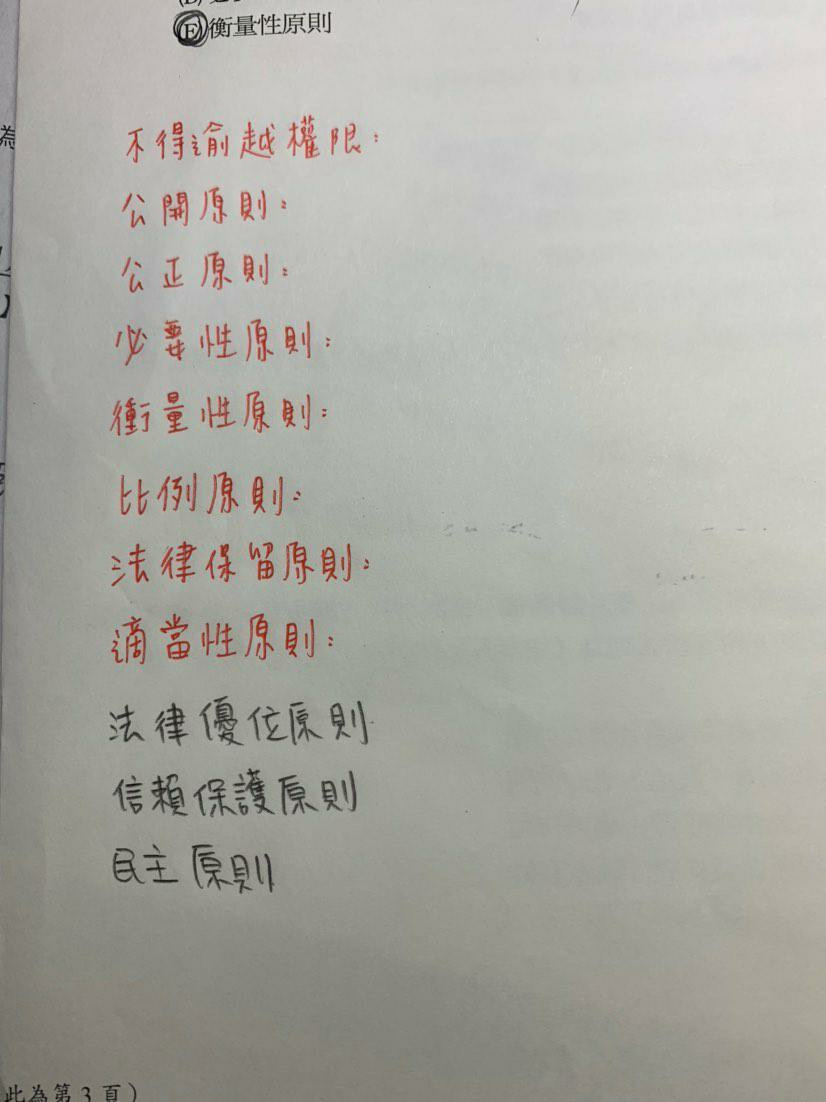 (E)衡量性原則
為
不得逾越權限:
公開原則:
公正原則:
必要性原則:
衡量性原則:
比例原則:
法律保留原則:
適當性原則:
法律優位原則
信賴保護原則
民主原則
此為第3頁)